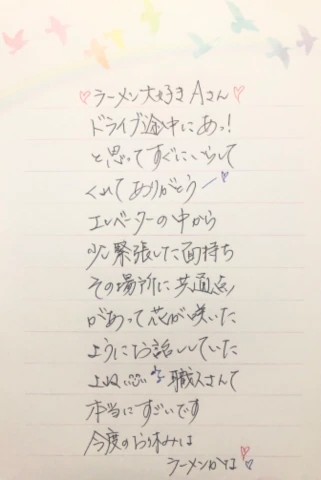 ♡ラーメン大好きAさん♡
ドライブ途中にあっ!
と思ってすぐにいらして
くれてありがとう♡
エレベーターの中から
少し緊張した面持ち
その場所に共通点
があって花が咲いた
ようにお話ししていた
職人さんて
本当にすごいです
今度のお休みは
ラーメンかな♡